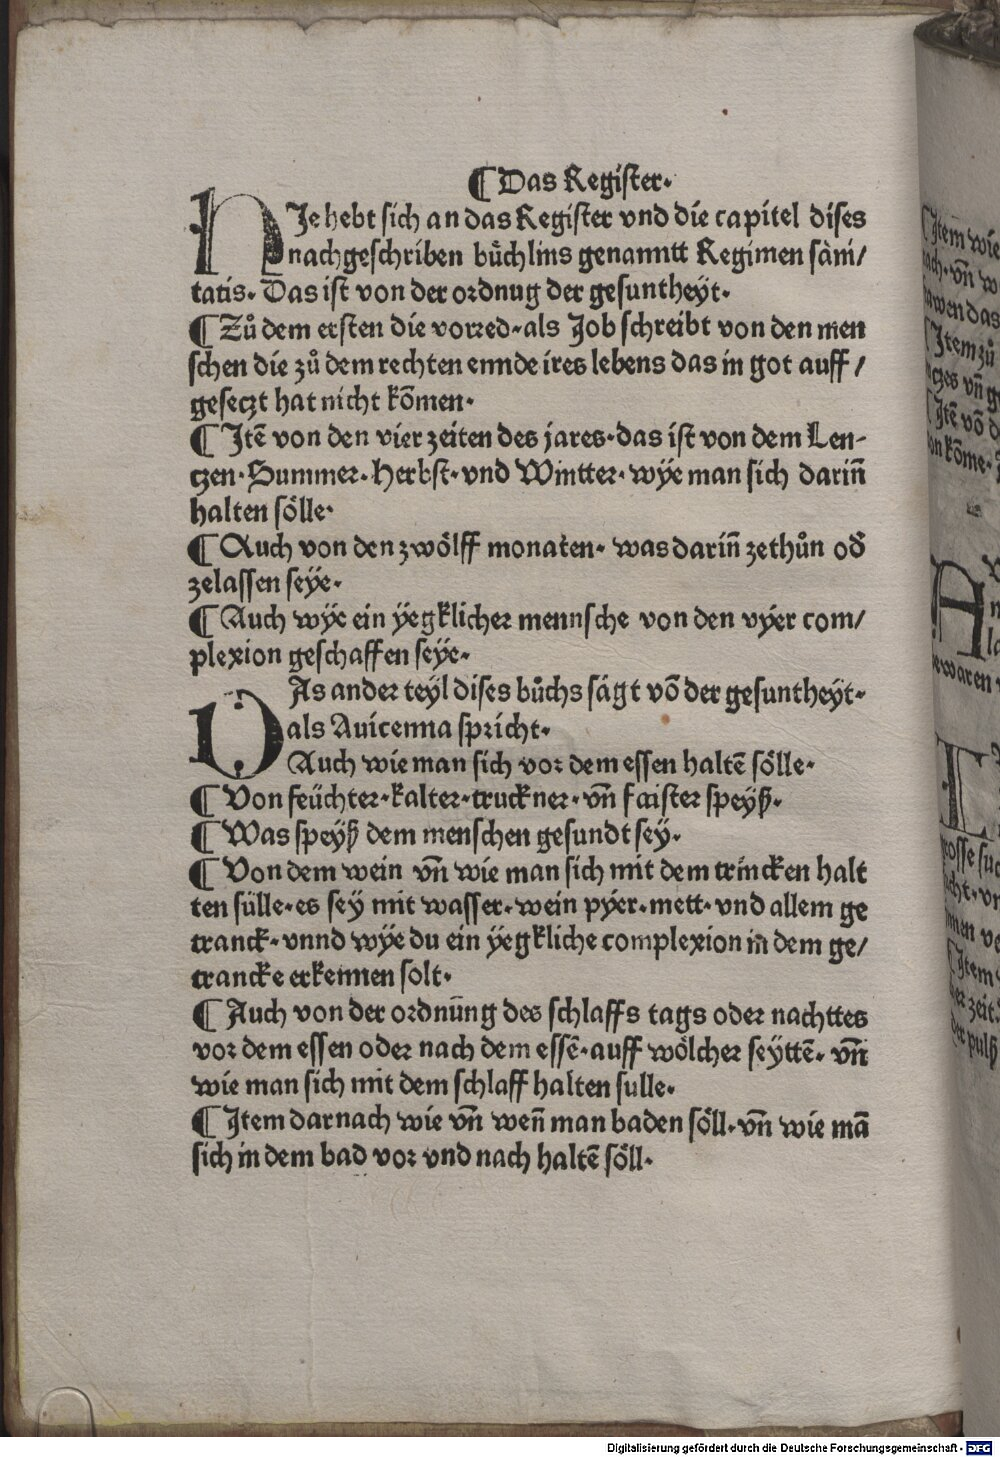 ¶ Das Register.
HJe hebt sich an das Register vnd die capitel dises
nachgeschriben bůchlins genanntt Regimen sani/
tatis. Das ist von der ordnug der gesuntheÿt.
¶ Zů dem ersten die vorred. als Job schreibt von den men
schen die zů dem rechten ennde ires lebens das in got auff/
geseczt hat nicht kom̄en.
¶ Jtē von den vier zeiten des jares. das ist von dem Len-
czen. Summer. Herbst. vnd Wintter. wÿe man sich darin̄
halten sölle.
¶ Auch von den zwölff monaten. was darin̄ zethůn od̄
zelassen seÿe.
¶ Auch wÿe ein ÿegklicher mennsche von den vÿer com/
plexion geschaffen seÿe.
DAs ander teyl dises bůchs sagt vō der gesuntheÿt.
als Auicenna spricht.
Auch wie man sich vor dem essen haltē sölle.
¶ Von feüchter. kalter. truckner. vn̄ faister speÿß.
¶ Was speÿß dem menschen gesundt sey.
¶ Von dem wein vn̄ wie man sich mit dem trincken halt
ten sülle. es sey mit wasser. wein pÿer. mett. vnd allem ge
tranck. vnnd wÿe du ein ÿegkliche complexion in dem ge/
trancke erkennen solt.
¶ Auch von der ordnūng des schlaffs tags oder nachttes
vor dem essen oder nach dem essē. auff wölcher seÿttē. vn̄
wie man sich mit dem schlaff halten sulle.
¶ Jtem darnach wie vn̄ wen̄ man baden söll. vn̄ wie mā
sich in dem bad vor vnd nach haltē söll.
¶ Jtem wie
vn̄ w
das
¶ Jtem zů
vn̄
Jtē vō
kōme.
A
waren
Jtem
zeit
puls
Digitalisierung gefördert durch die Deutsche Forschungsgemeinschaft - DFG